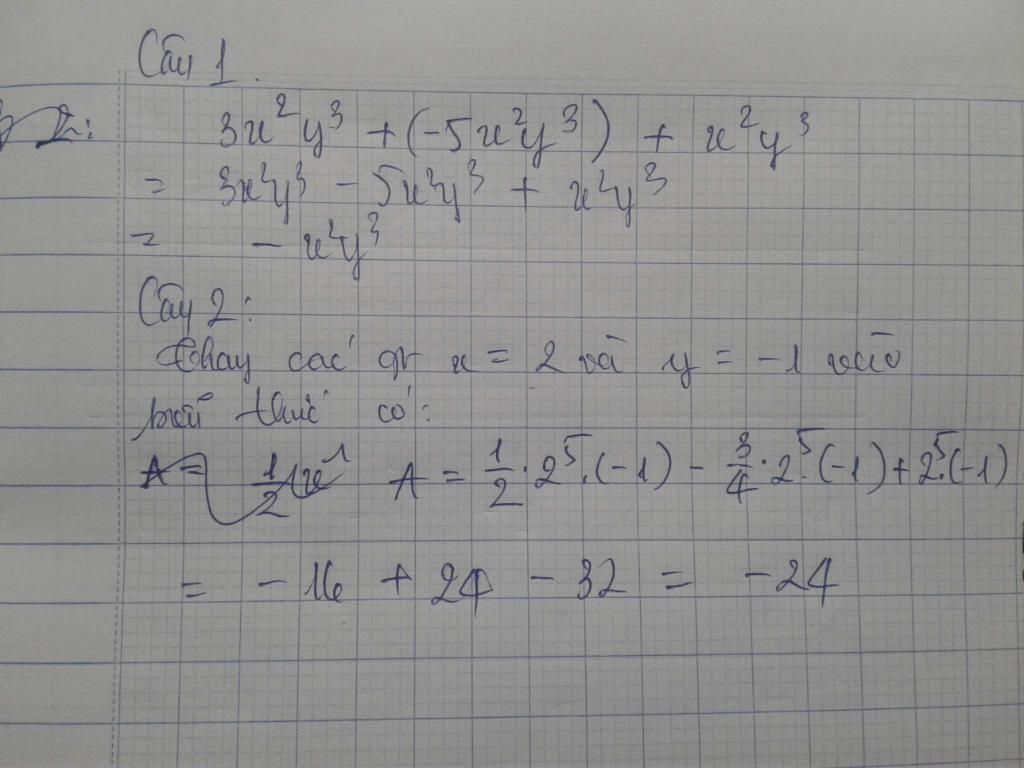 Câu 1.
2: 3x²y³ + (-5x²y³) + x²y³
= 3x²y³ - 5x²y³ + x²y³
= - x²y³
Câu 2:
thay các gt x = 2 và y = -1 vào
thức có:
A = 1/2 A = 1/2 · 2⁵.(-1) - 3/4 · 2⁵.(-1) + 2⁵.(-1)
= - 16 + 24 - 32 = - 24